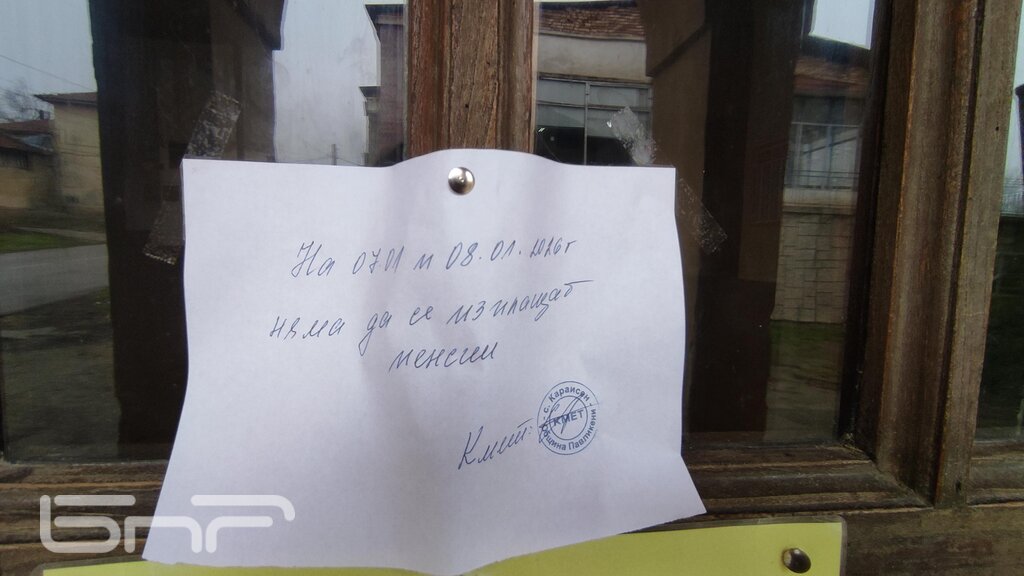 На 07.01 и 08.01.2026г
няма да се изплащат
пенсии
Кмет:
с. Караисен
КМЕТ
Община Павликени
БНР